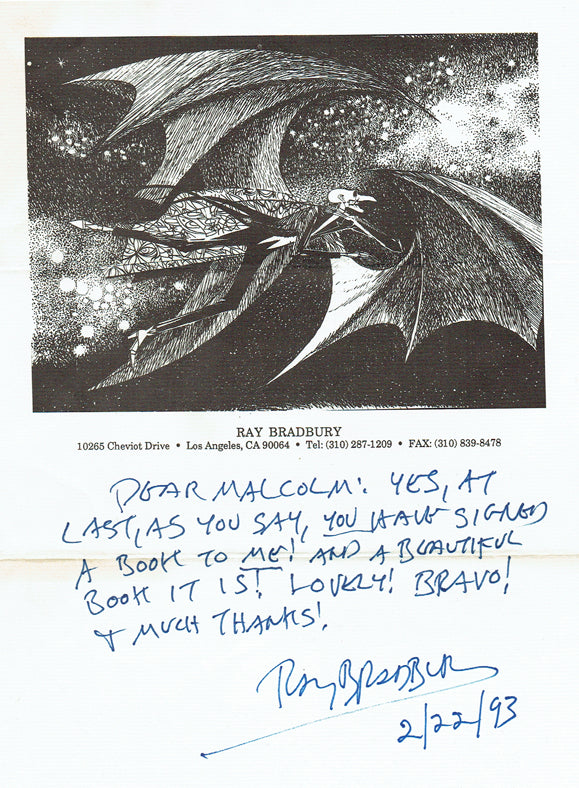 RAY BRADBURY
10265 Cheviot Drive • Los Angeles, CA 90064 • Tel: (310) 287-1209 • FAX: (310) 839-8478
DEAR MALCOLM: YES, AT
LAST, AS YOU SAY, YOU HAVE SIGNED
A BOOK TO ME! AND A BEAUTIFUL
BOOK IT IS! LOVELY! BRAVO!
& MUCH THANKS!
RAY BRADBURY
2/22/93